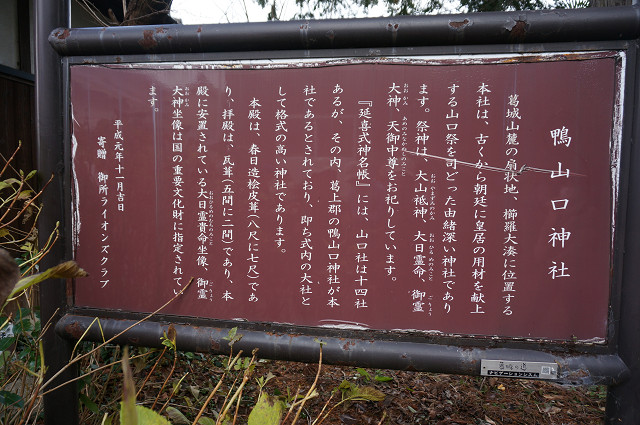 鴨山口神社
葛城山麓の扇状地、櫛羅大湊に位置する
本社は、古くから朝廷に皇居の用材を献上
する山口祭を司どった由緒深い神社であり
ます。祭神は、大山祇神、大日霊命、御霊
大神、天御中尊をお祀りしています。
『延喜式神名帳』には、山口社は十四社
あるが、その内、葛上郡の鴨山口神社が本
社であるとされており、即ち式内の大社と
して格式の高い神社であります。
本殿は、春日造桧皮葺(八尺に七尺)であ
り、拝殿は、瓦葺(五間に二間)であり、本
殿に安置されている大日霊貴命坐像、御霊
大神坐像は国の重要文化財に指定されてい
ます。
平成元年十一月吉日
寄贈 御所ライオンズクラブ
葛城の道
ナビゲーションシステム